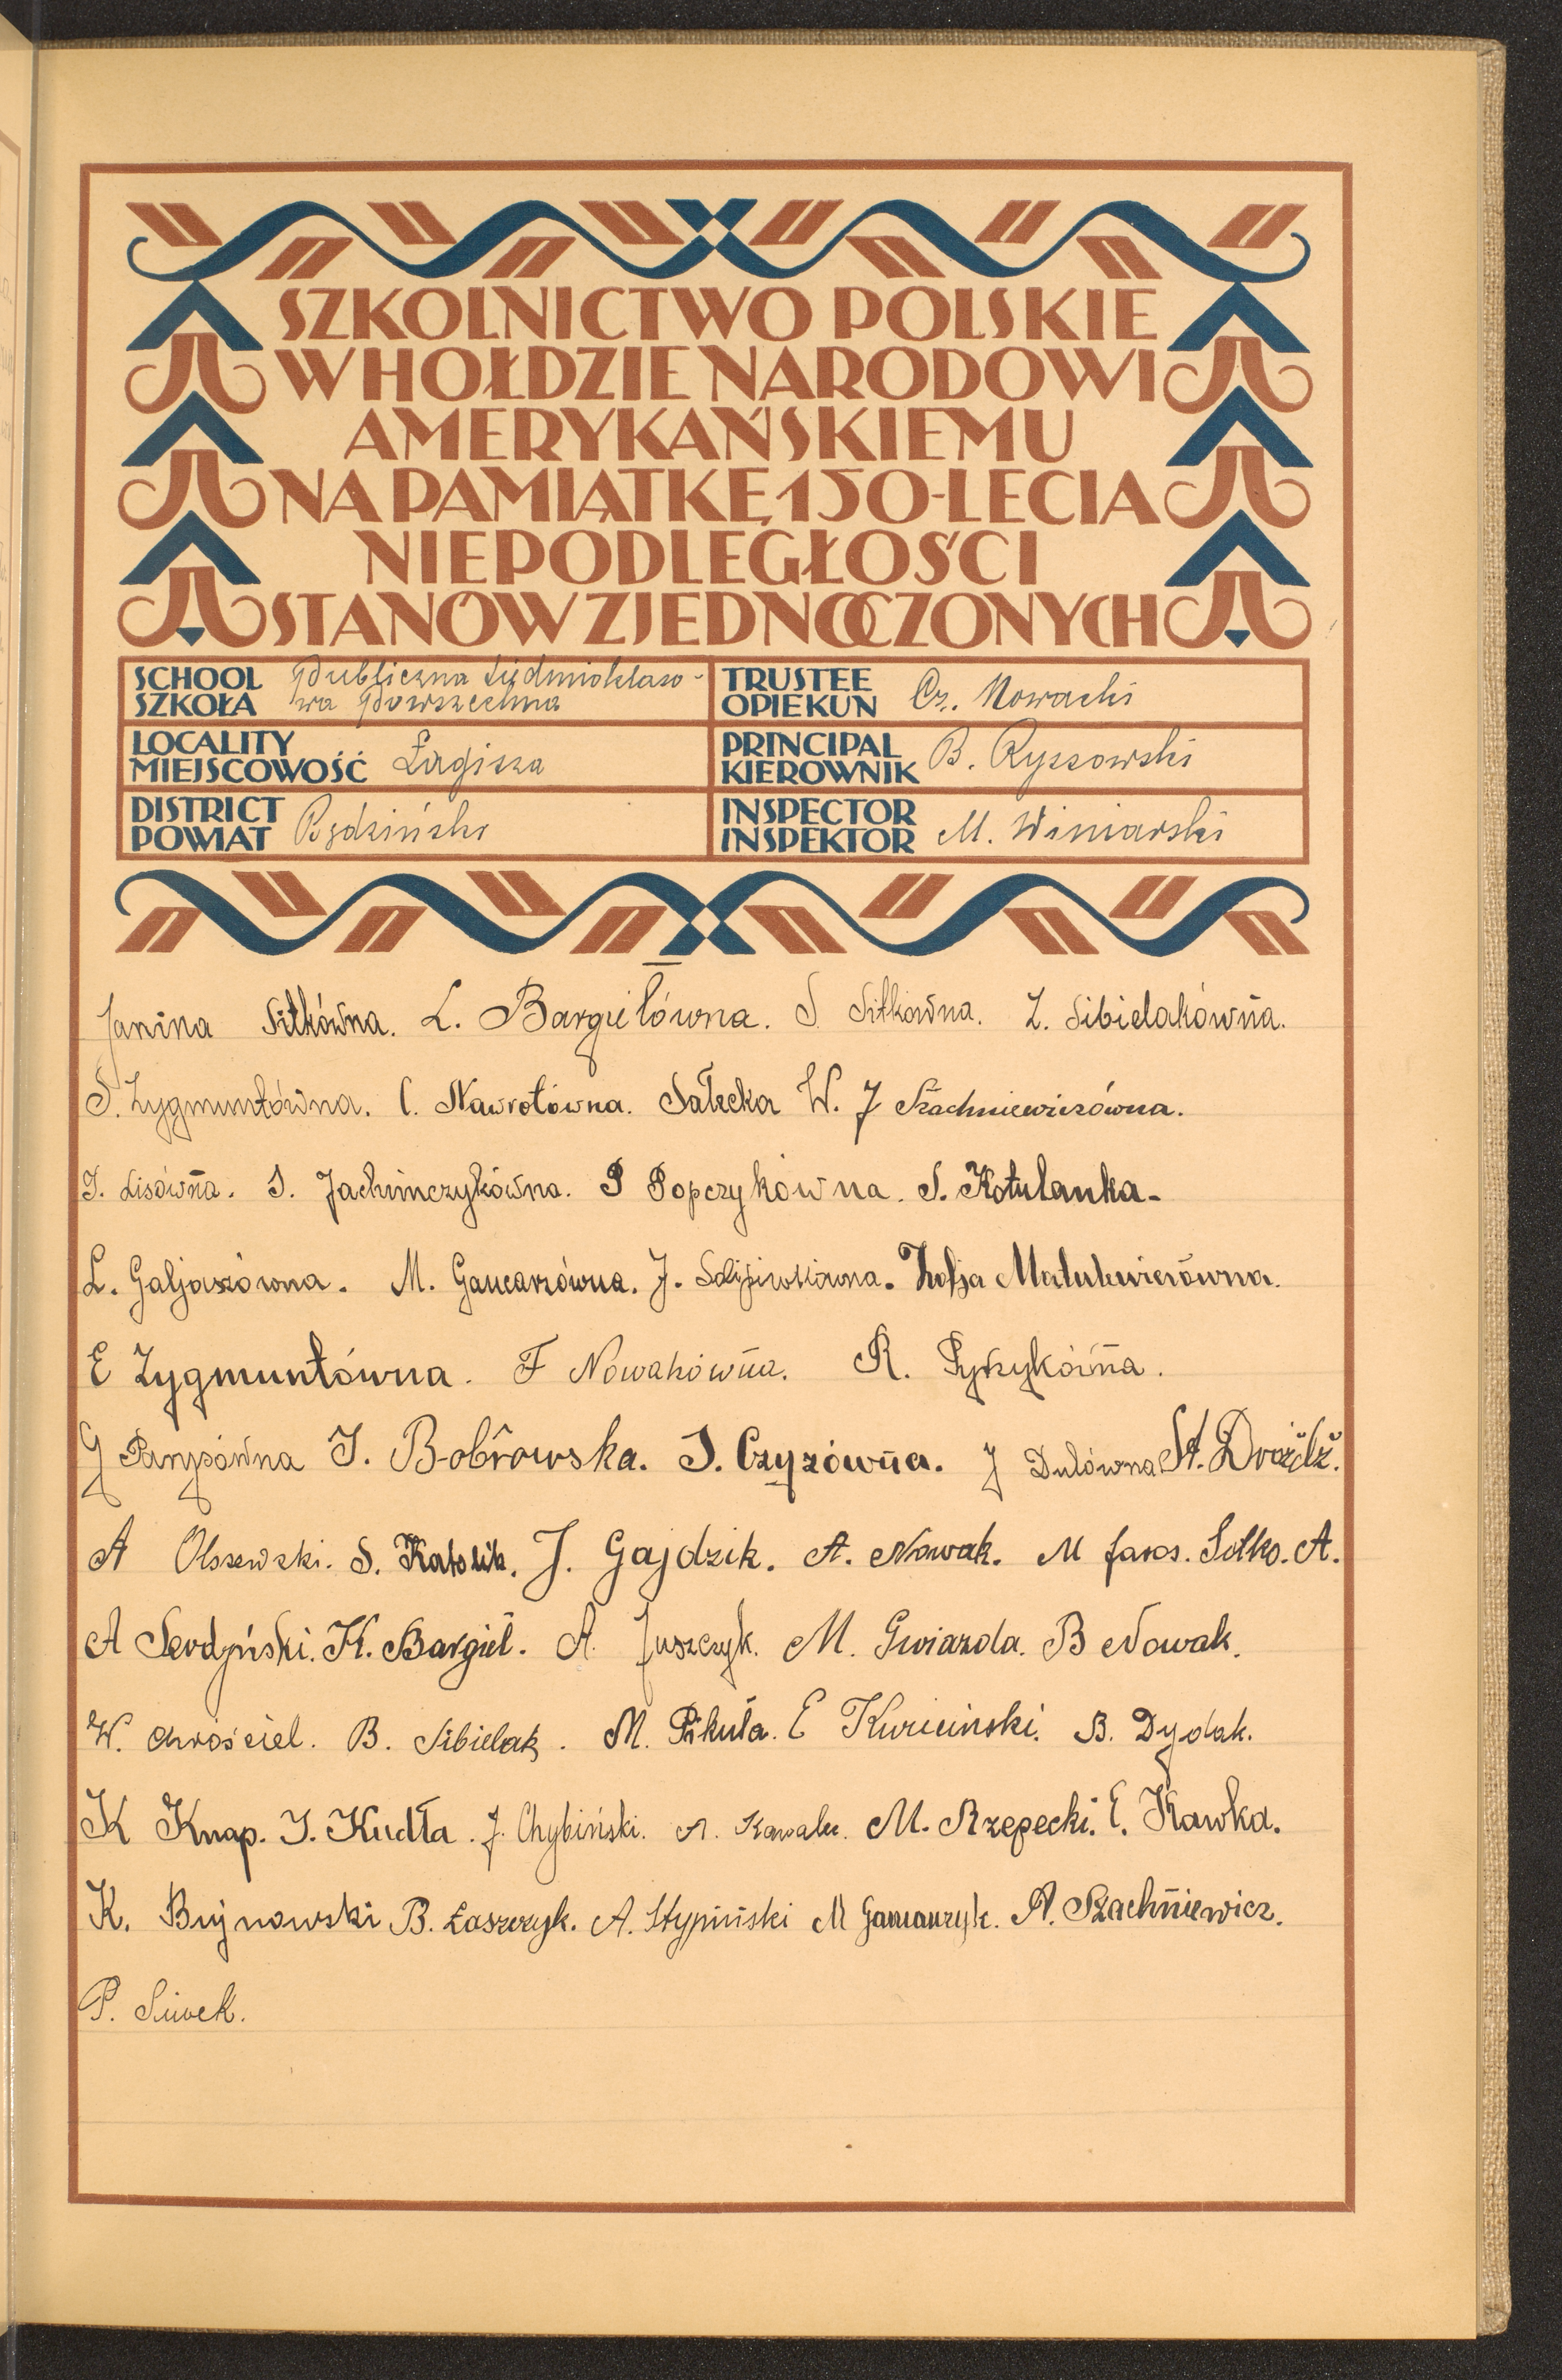 SZKOLNICTWO POLSKIE
W HOŁDZIE NARODOWI
AMERYKAŃSKIEMU
NA PAMIĄTKĘ 150-LECIA
NIEPODLEGŁOŚCI
STANÓW ZJEDNOCZONYCH
SCHOOL SZKOŁA Publiczna Siedmioklaso-
wa Powszechna
TRUSTEE OPIEKUN Cz. Nowacki
LOCALITY MIEJSCOWOŚĆ Łagisza
PRINCIPAL KIEROWNIK B. Ryszowski
DISTRICT POWIAT Będziński
INSPECTOR INSPEKTOR M. Winiarski
Janina Sitkówna. L. Bargiełówna. S. Sitkówna. Z. Sibielakówna.
S. Zygmuntówna. C. Nawrotówna. Sałecka W. J Szachniewiczówna.
J. Lisówna. S. Jachimczykówna. P Popczykówna. S. Kotulanka.
L. Galjaszówna. M. Gancarzówna. J. Zofja Matulewiczówna.
E Zygmuntówna. F Nowakówna. R. Pyrzykówna.
G Parysówna J. Bobrowska. J. Czyżówna. J Dulówna St. Dróżdż.
A Olszewski. S. Katolik. J. Gajdzik. A. Nowak. M Jaros. Sołko. A.
A Serdyński. K. Bargieł. A. Juszczyk. M. Gwiazda. B Nowak.
W. Chróściel. B. Sibielak. M. Pikuła. E Kwieciński. B. Dydak.
K Knap. J. Kudła. J. Chybiński. A. Kowalec. M. Rzepecki. E. Kawka.
K. Bujnowski B. Łaszczyk. A. Stypiński M Gancarczyk. A. Szachniewicz.
P. Siwek.